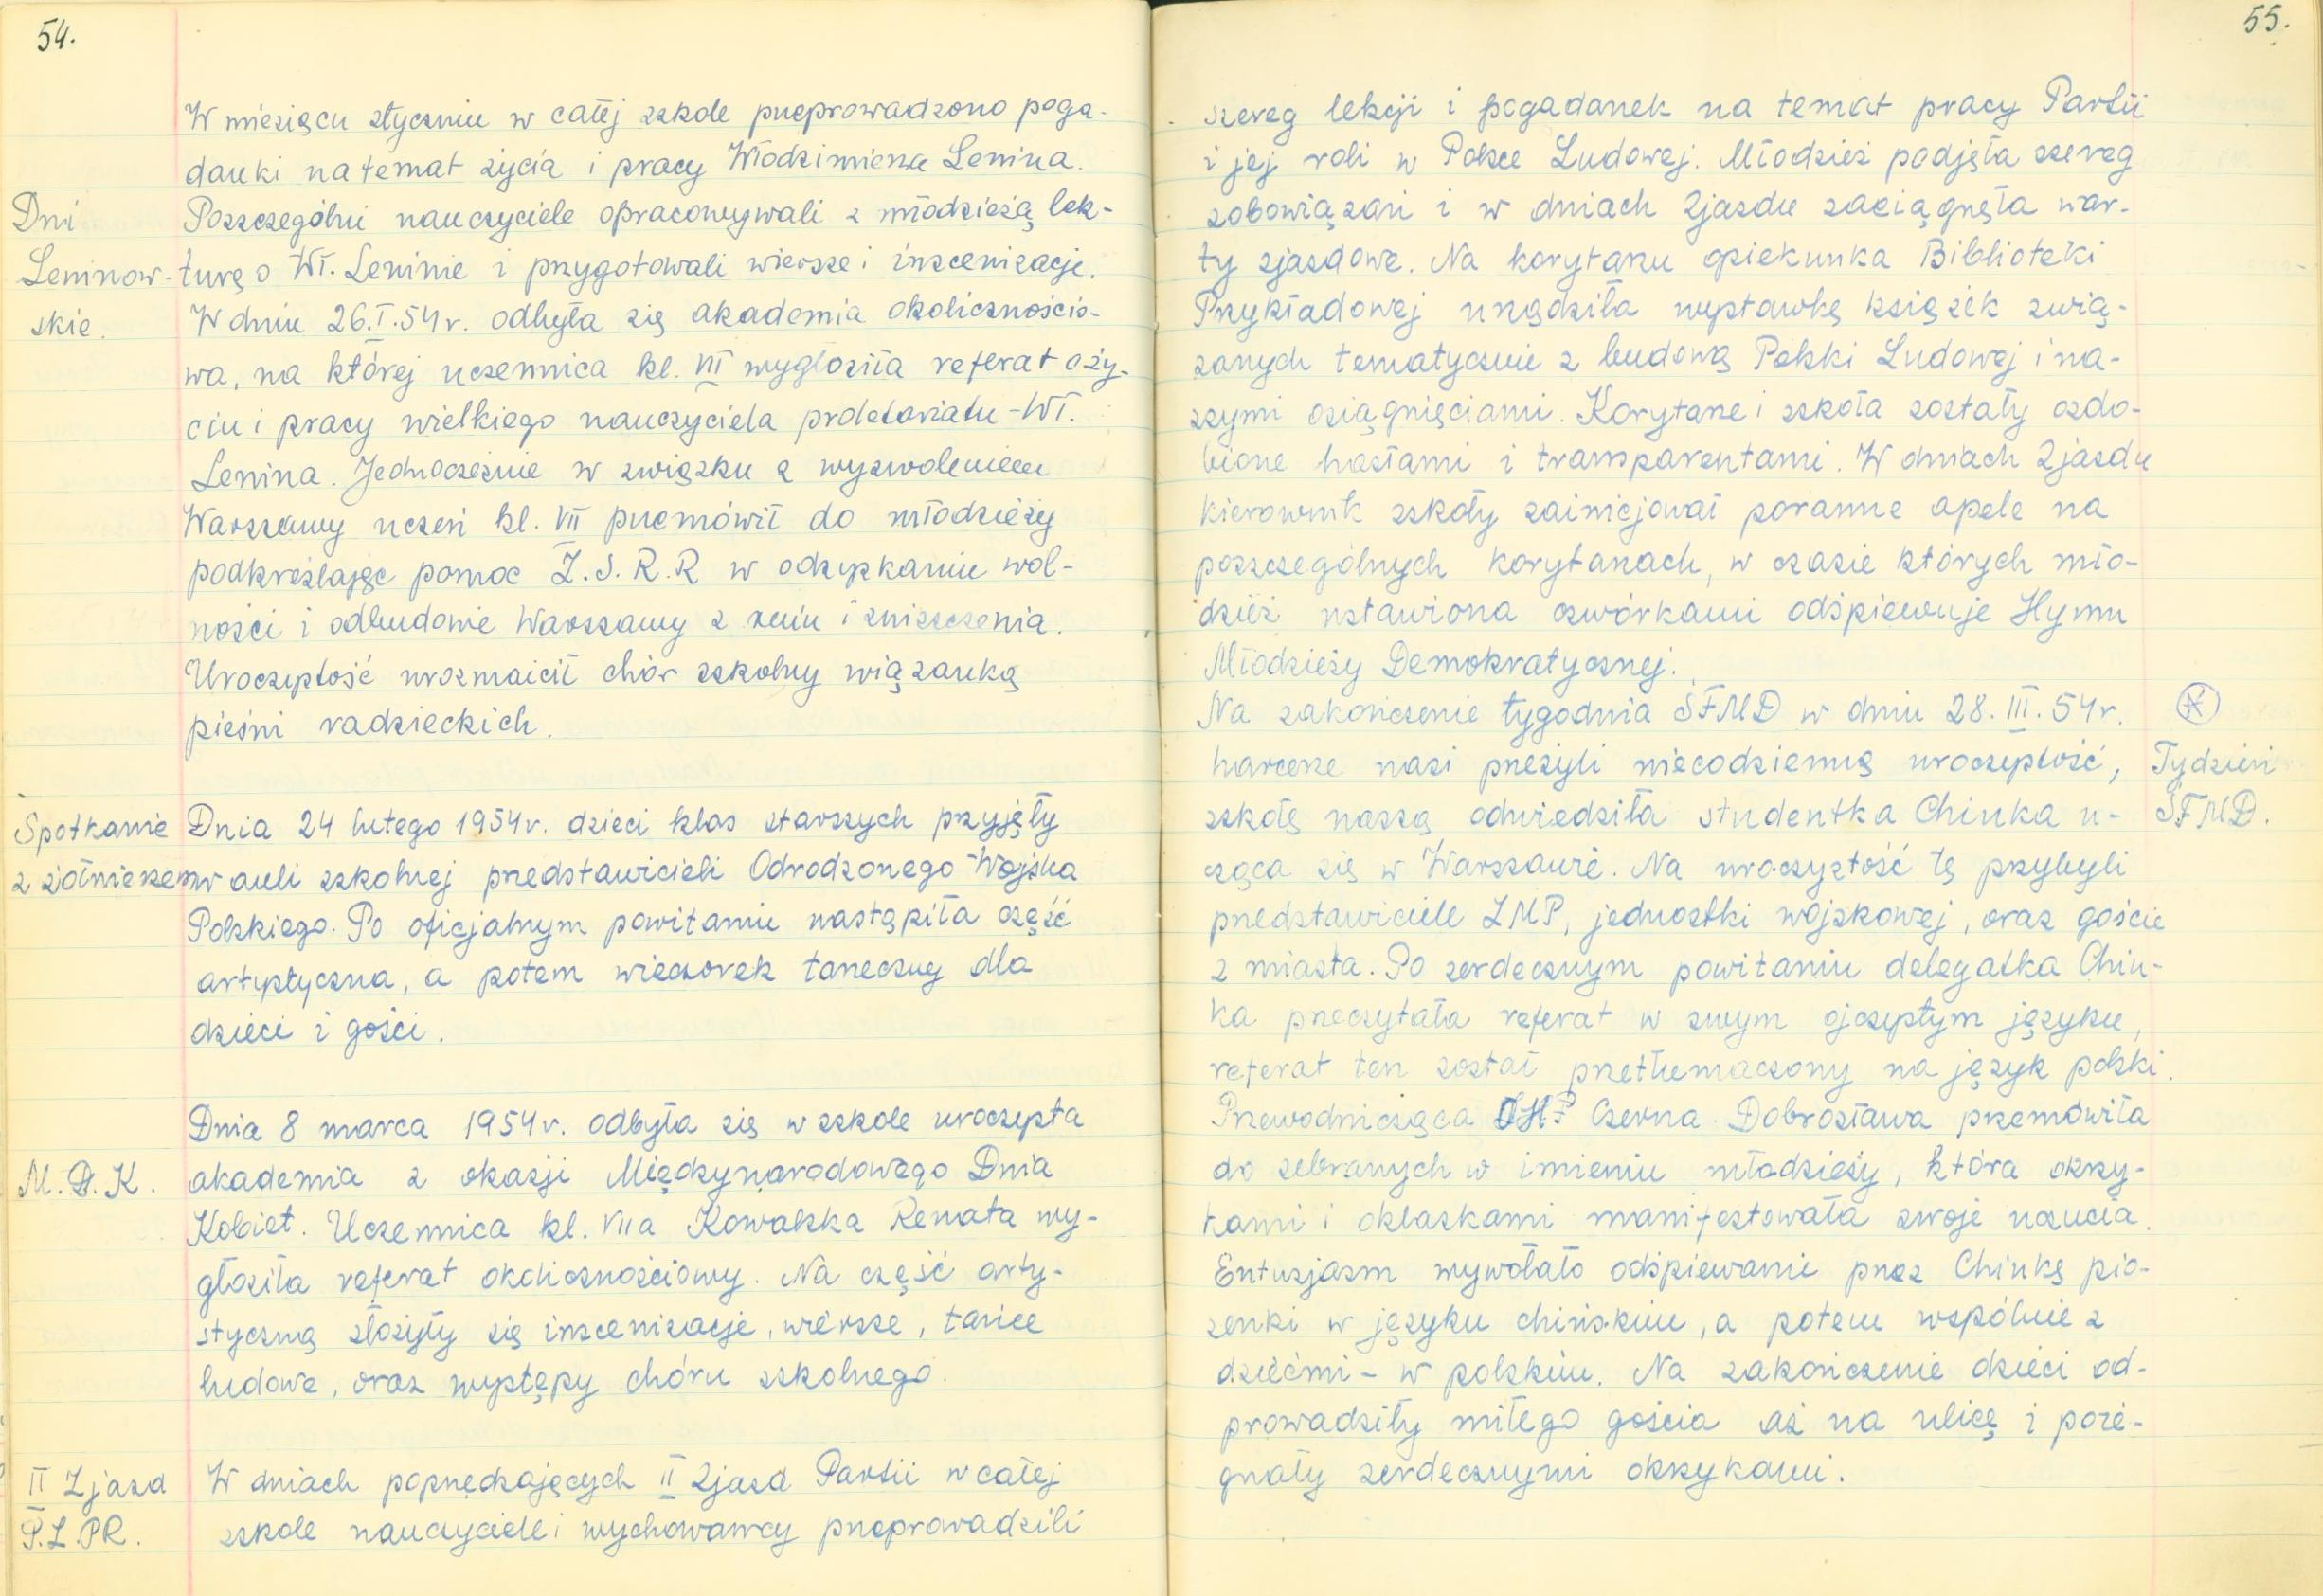 54.
W miesiącu styczniu w całej szkole przeprowadzono poga-
danki na temat życia i pracy Włodzimierza Lenina.
Dni
Poszczególni nauczyciele opracowywali z młodzieżą lek-
Leninow-
turę o Wł. Leninie i przygotowali wiersze i inscenizacje.
skie.
W dniu 26.I.54r. odbyła się akademia okolicznościo-
wa, na której uczennica kl. VII wygłosiła referat o ży-
ciu i pracy wielkiego nauczyciela proletariatu - Wł.
Lenina. Jednocześnie w związku z wyzwoleniem
Warszawy uczeń kl. VII przemówił do młodzieży
podkreślając pomoc Z.S.R.R w odzyskaniu wol-
ności i odbudowie Warszawy z ruin i zniszczenia.
Uroczystość urozmaicił chór szkolny wiązanką
pieśni radzieckich.
Spotkanie
Dnia 24 lutego 1954r. dzieci klas starszych przyjęły
z żołnierzem
w auli szkolnej przedstawicieli Odrodzonego Wojska
Polskiego. Po oficjalnym powitaniu nastąpiła część
artystyczna, a potem wieczorek taneczny dla
dzieci i gości.
Dnia 8 marca 1954r. odbyła się w szkole uroczysta
M.D.K.
akademia z okazji Międzynarodowego Dnia
Kobiet. Uczennica kl. VIIa Kowalska Renata wy-
głosiła referat okolicznościowy. Na część arty-
styczną złożyły się inscenizacje, wiersze, tańce
ludowe, oraz występy chóru szkolnego.
II Zjazd
W dniach poprzedzających II Zjazd Partii w całej
P.Z.PR.
szkole nauczyciele i wychowawcy przeprowadzili
55.
szereg lekcji i pogadanek na temat pracy Partii
i jej roli w Polsce Ludowej. Młodzież podjęła szereg
zobowiązań i w dniach Zjazdu zaciągnęła war-
ty zjazdowe. Na korytarzu opiekunka Biblioteki
Przykładowej urządziła wystawkę książek zwią-
zanych tematycznie z budową Polski Ludowej i na-
szymi osiągnięciami. Korytarze i szkoła zostały ozdo-
bione hasłami i transparentami. W dniach Zjazdu
kierownik szkoły zainicjował poranne apele na
poszczególnych korytarzach, w czasie których mło-
dzież ustawiona czwórkami odśpiewuje Hymn
Młodzieży Demokratycznej.
Na zakończenie tygodnia ŚFMD w dniu 28.III.54r.
harcerze nasi przeżyli niecodzienną uroczystość,
Tydzień
szkołę naszą odwiedziła studentka Chinka u-
ŚFMD.
cząca się w Warszawie. Na uroczystość tę przybyli
przedstawiciele ZMP, jednostki wojskowej, oraz goście
z miasta. Po serdecznym powitaniu delegatka Chin-
ka przeczytała referat w swym ojczystym języku,
referat ten został przetłumaczony na język polski.
Przewodnicząca OHP Czerna Dobrosława przemówiła
do zebranych w imieniu młodzieży, która okrzy-
kami i oklaskami manifestowała swoje uczucia.
Entuzjazm wywołało odśpiewanie przez Chinkę pio-
senki w języku chińskim, a potem wspólnie z
dziećmi - w polskim. Na zakończenie dzieci od-
prowadziły miłego gościa aż na ulicę i poże-
gnały serdecznymi okrzykami.